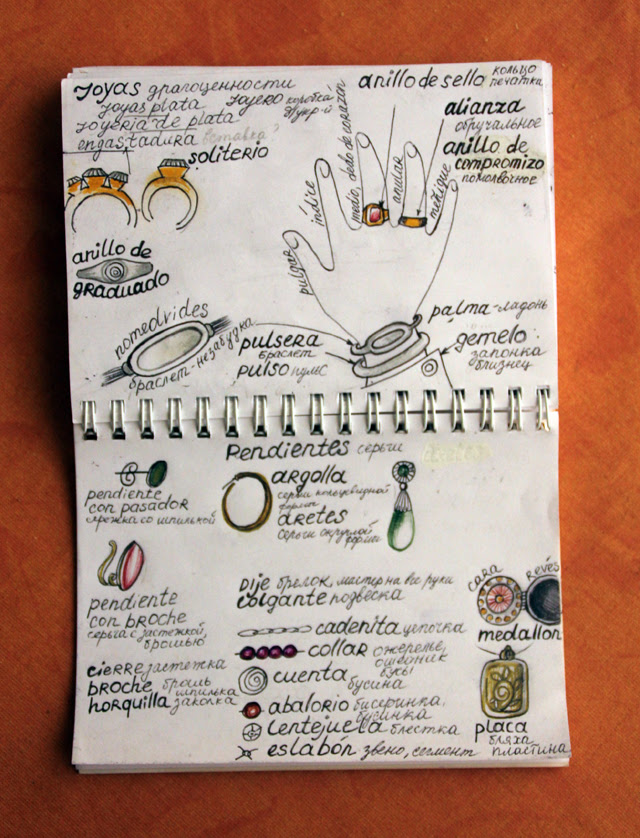 Joyas драгоценности
joyas plata joyero коробка
joyería de plata
engastadura вставка?
soliterio
anillo de sello кольцо
печатка
alianza
обручальное
anillo de
compromizo
помолвочное
pulgar
índice
medio, dedo de corazón
anular
meñique
anillo de
graduado
nomedvides
браслет-незабудка
pulsera
браслет
pulso пульс
palma-ладонь
gemelo
запонка
близнец
Pendientes серьги
pendiente
con pasador
argolla
серьги кольцевидной
формы
aretes
серьги округлой
формы
pendiente
con broche
серьга с застежкой,
брошью
cierre застежка
broche брошь
шпилька
horquilla заколка
Dije брелок, мастер на все руки
colgante подвеска
cadenita цепочка
collar ожерелье,
ошейник
бусы
cuenta
бусина
abalorio бисеринка,
бусинка
lentejuela блестка
eslabón звено, сегмент
cara
revés
medallon
placa
бляха
пластина